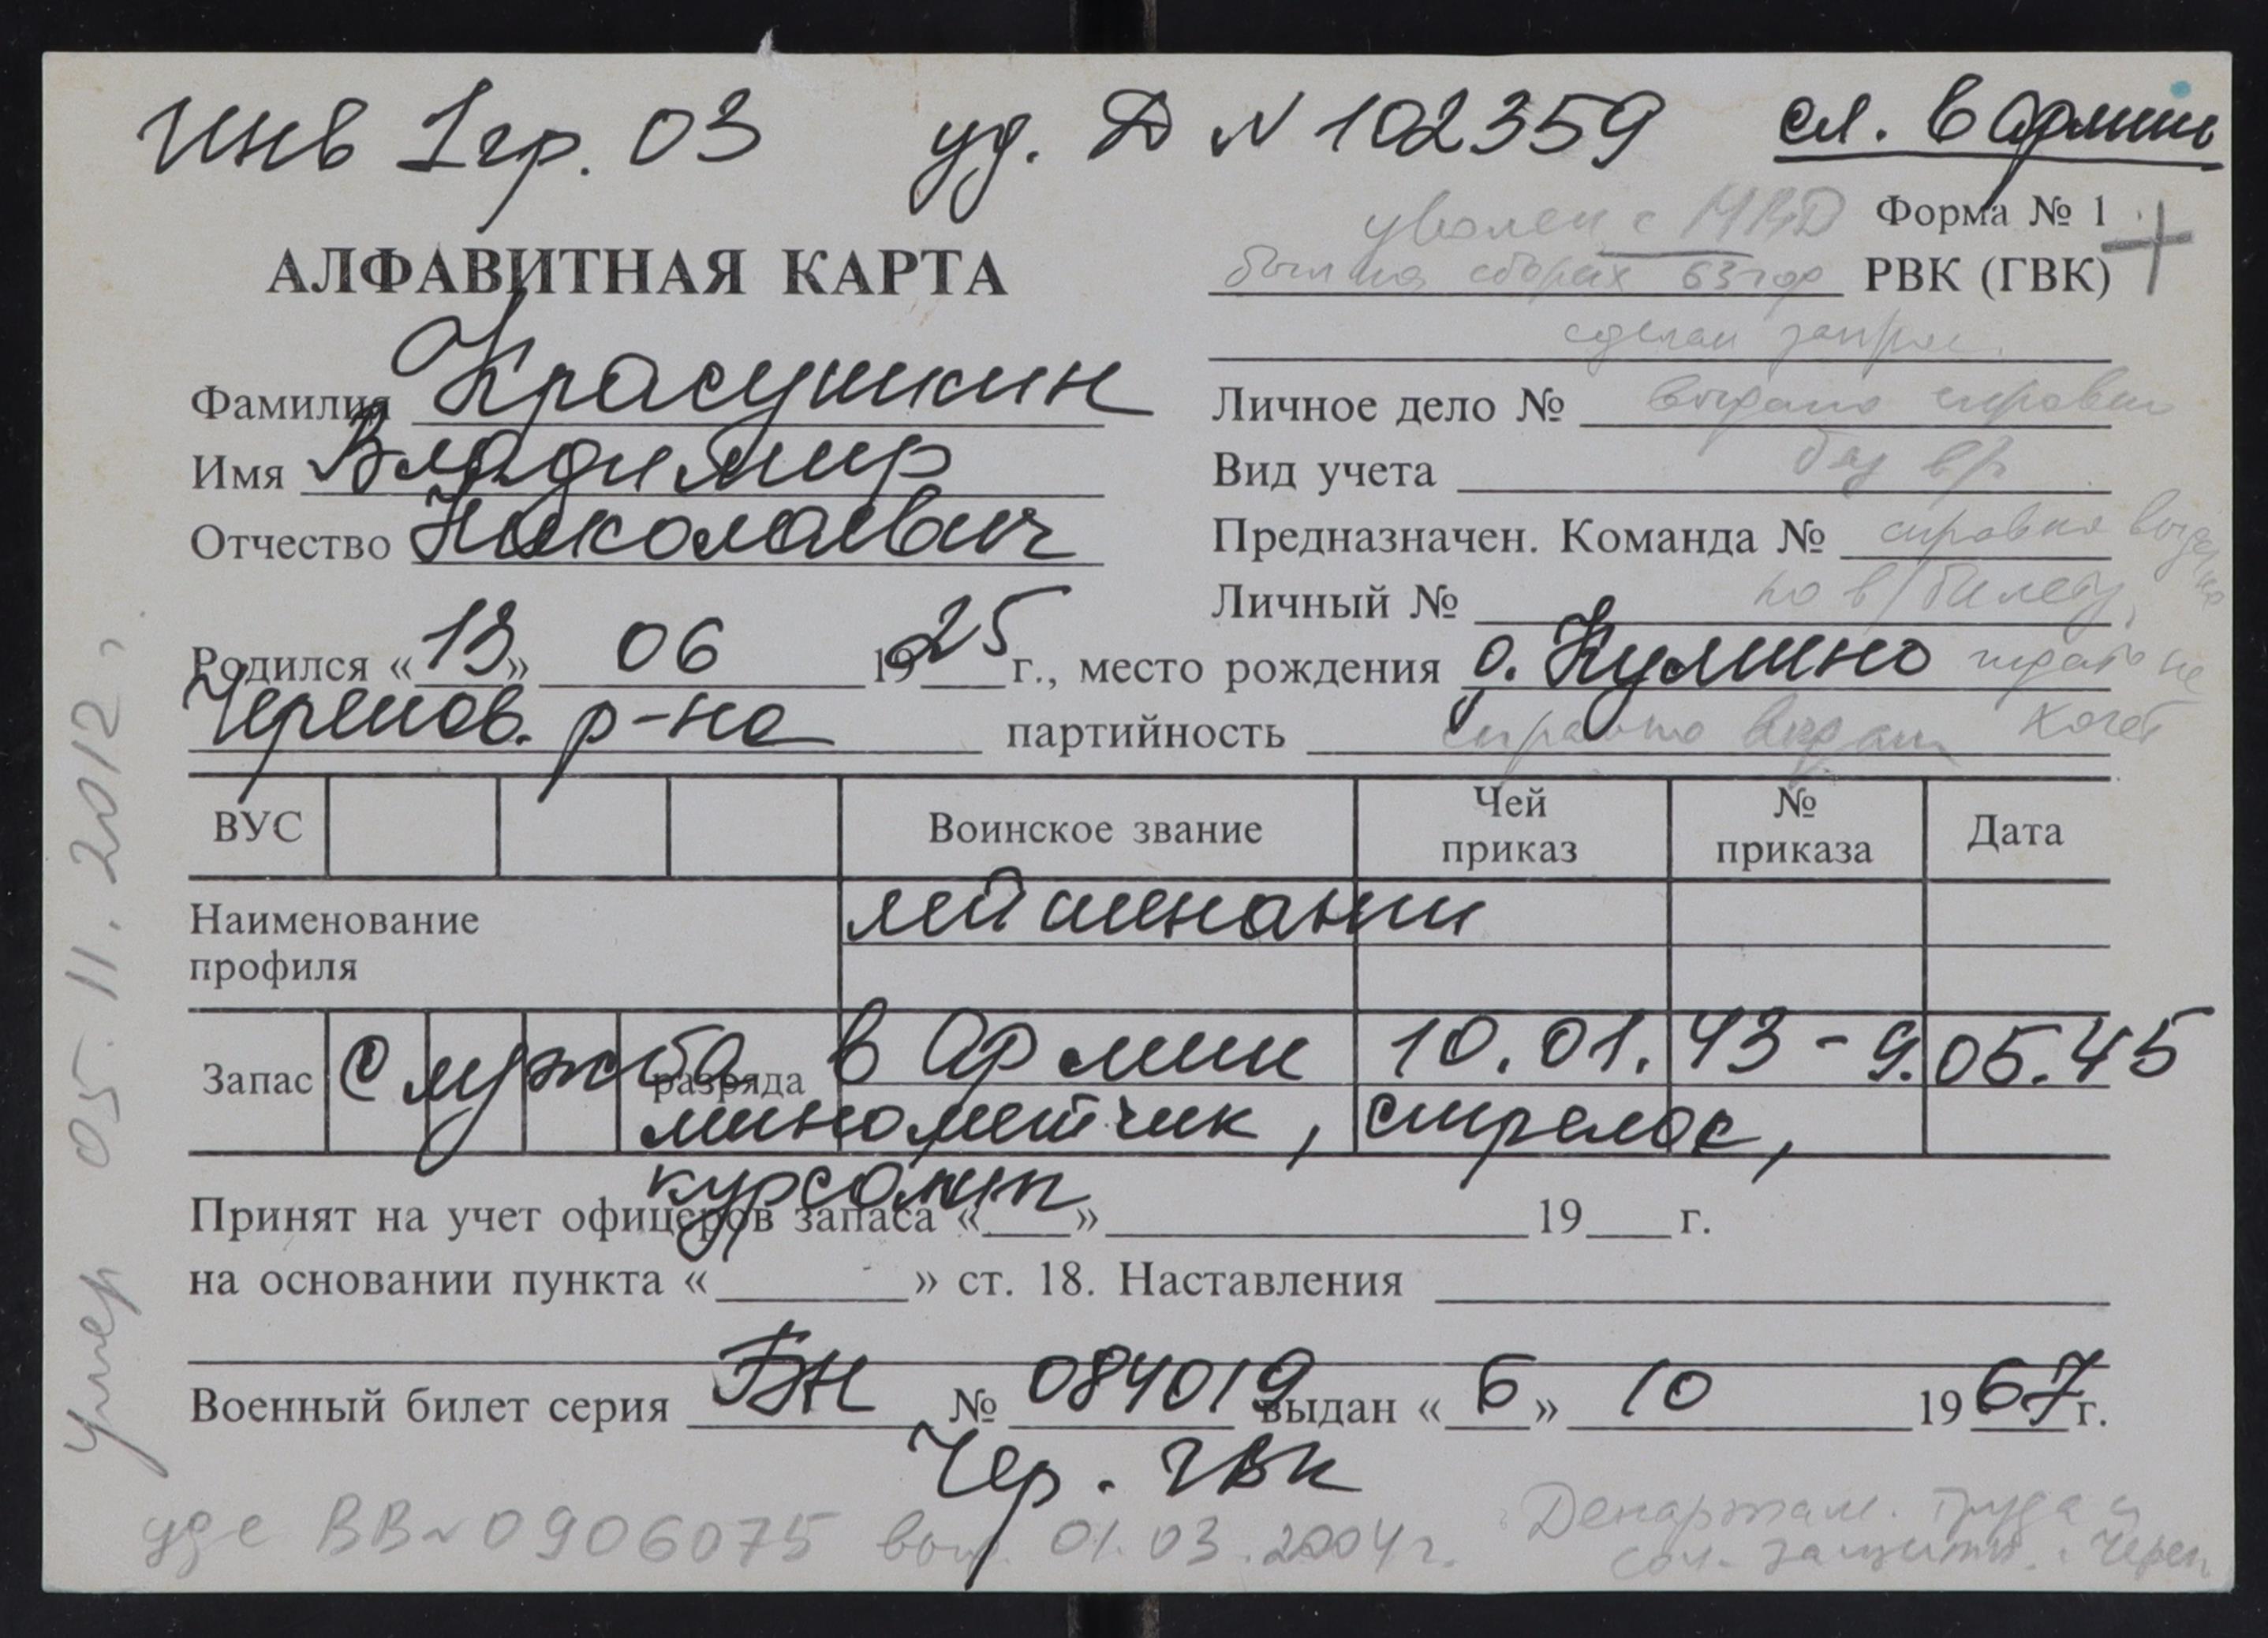 инв 1 гр. 03 уд. Д N 102359 сл. в Армии
уволен с МВД Форма № 1
АЛФАВИТНАЯ КАРТА
был на сборах 63 год РВК (ГВК)
сделан запрос
Фамилия Красушкин
Личное дело № выдана справка
Имя Владимир
Вид учета без вр
Отчество Николаевич
Предназначен. Команда № справка выдана
Личный № по в/билету
Родился «13» 06 1925 г., место рождения д. Кулмино не
Черепов. р-на партийность справка выдана хочет
ВУС Воинское звание Чей приказ № приказа Дата
Наименование профиля лейтенант
Запас разряда служба в Армии 10.01.43 - 9.05.45
миномётчик, стрелок,
курсант
Принят на учет офицеров запаса «___» 19___г.
на основании пункта «___» ст. 18. Наставления
Военный билет серия БН № 084019 выдан «6» 10 1967 г.
Чер. ГВК
уд е ВВ N 0906075 выд. 01.03.2004 г. Департам. труда и
соц. защиты г. Череп
Умер 05.11.2012 г.